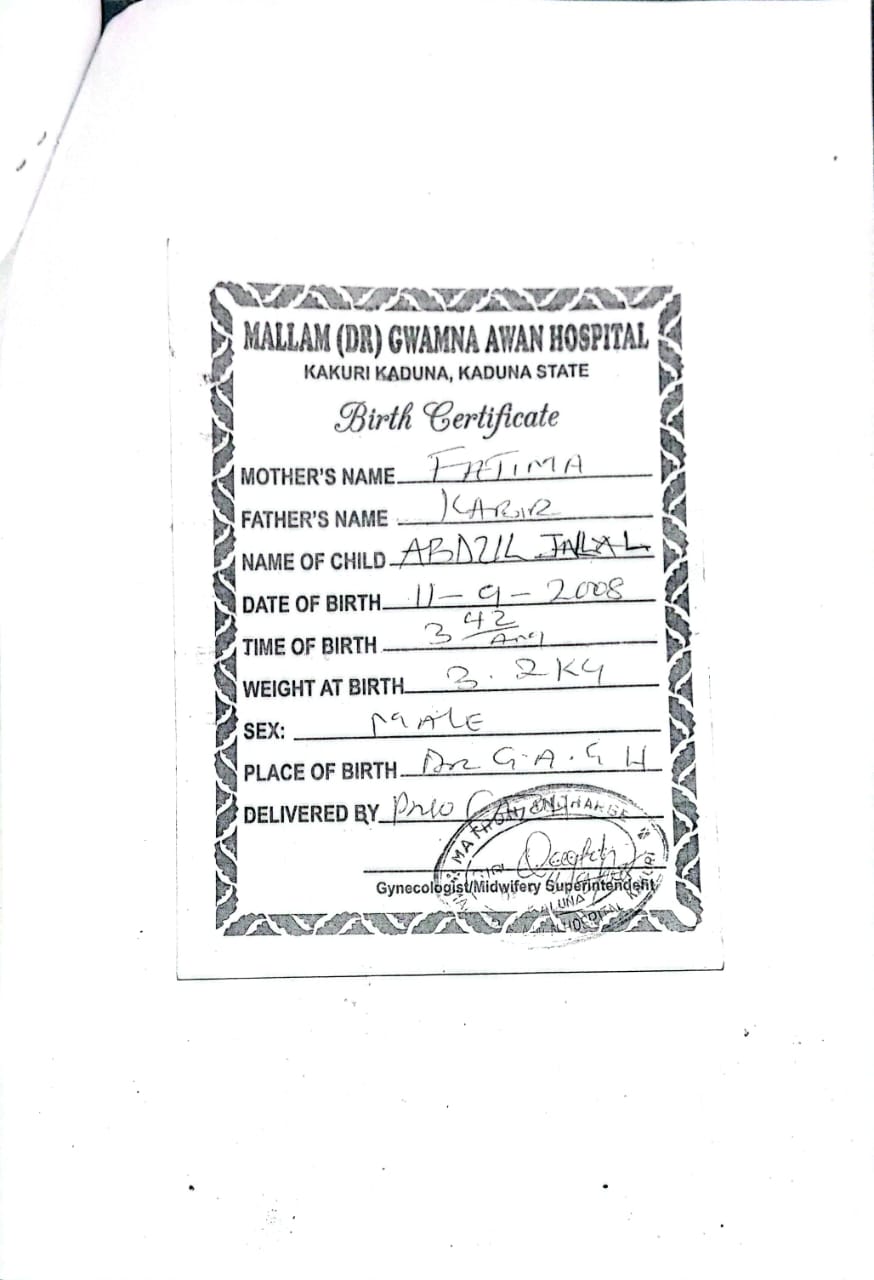 MALLAM (DR) GWAMNA AWAN HOSPITAL
KAKURI KADUNA, KADUNA STATE
Birth Certificate
MOTHER'S NAME FATIMA
FATHER'S NAME KABIR
NAME OF CHILD ABDZUL JALLAL
DATE OF BIRTH 11-9-2008
TIME OF BIRTH 3 42 Am
WEIGHT AT BIRTH 3.2KG
SEX: MALE
PLACE OF BIRTH DR G.A.G H
DELIVERED BY
MATRON IN CHARGE
Gynecologist/Midwifery Superintendent
HOSPITAL